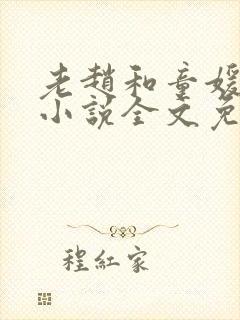 老趙和童媛
小說全文免
程紅家